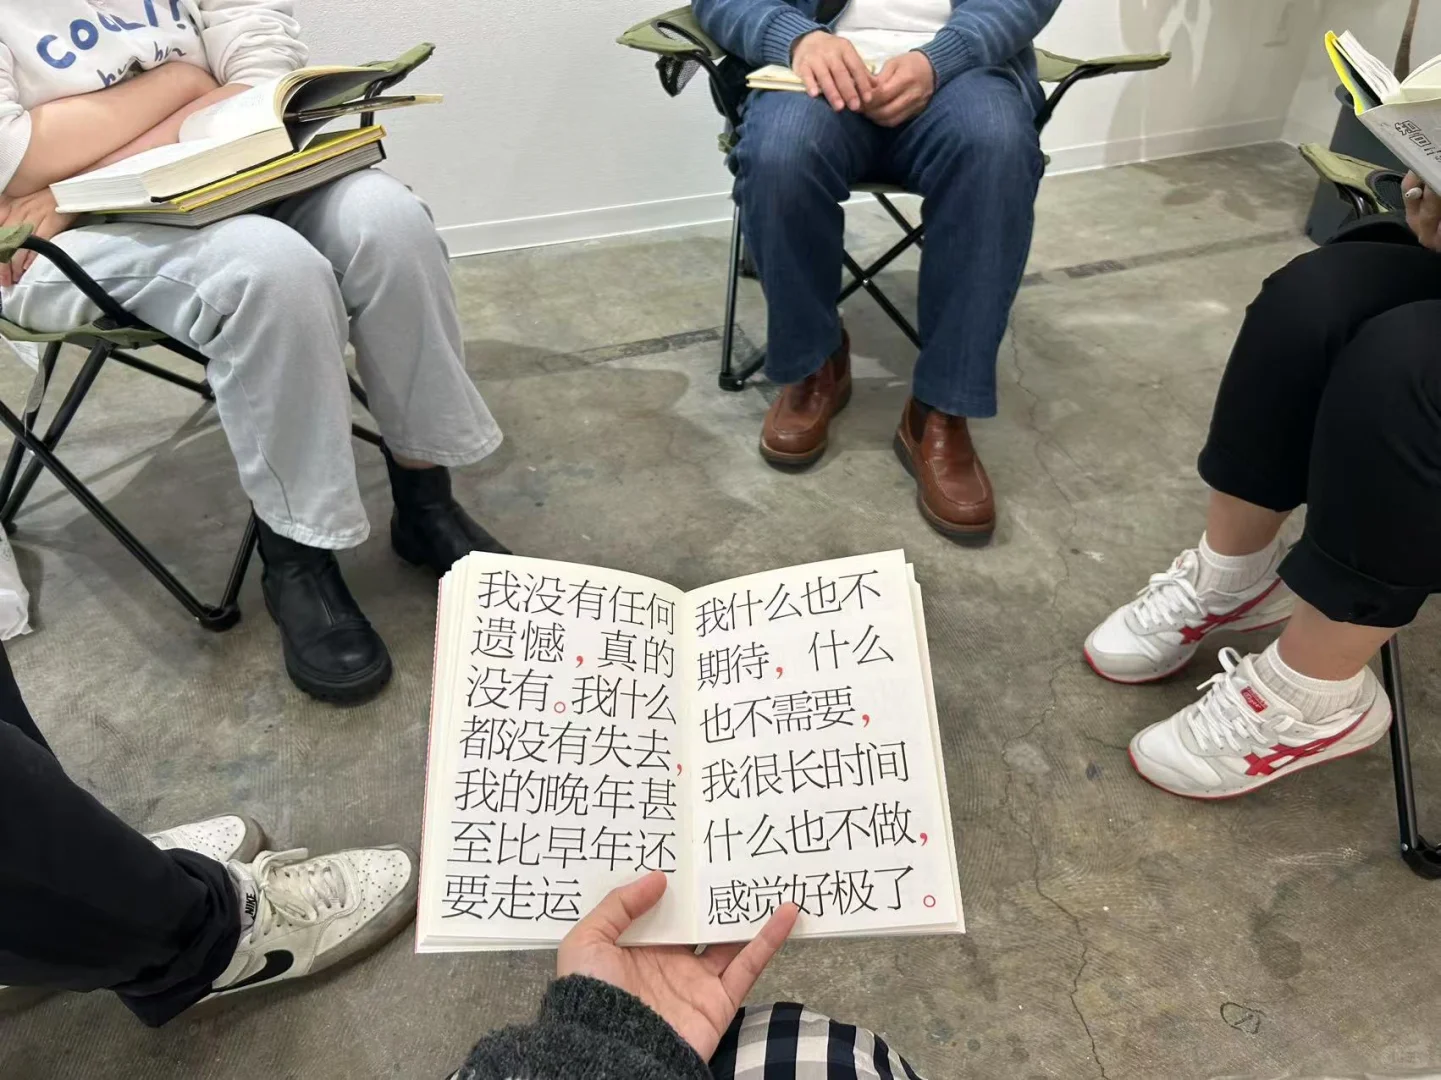 COOL
我没有任何
遗憾，真的
没有。我什么
都没有失去，
我的晚年甚
至比早年还
要走运
我什么也不
期待，什么
也不需要，
我很长时间
什么也不做，
感觉好极了。
NIKE